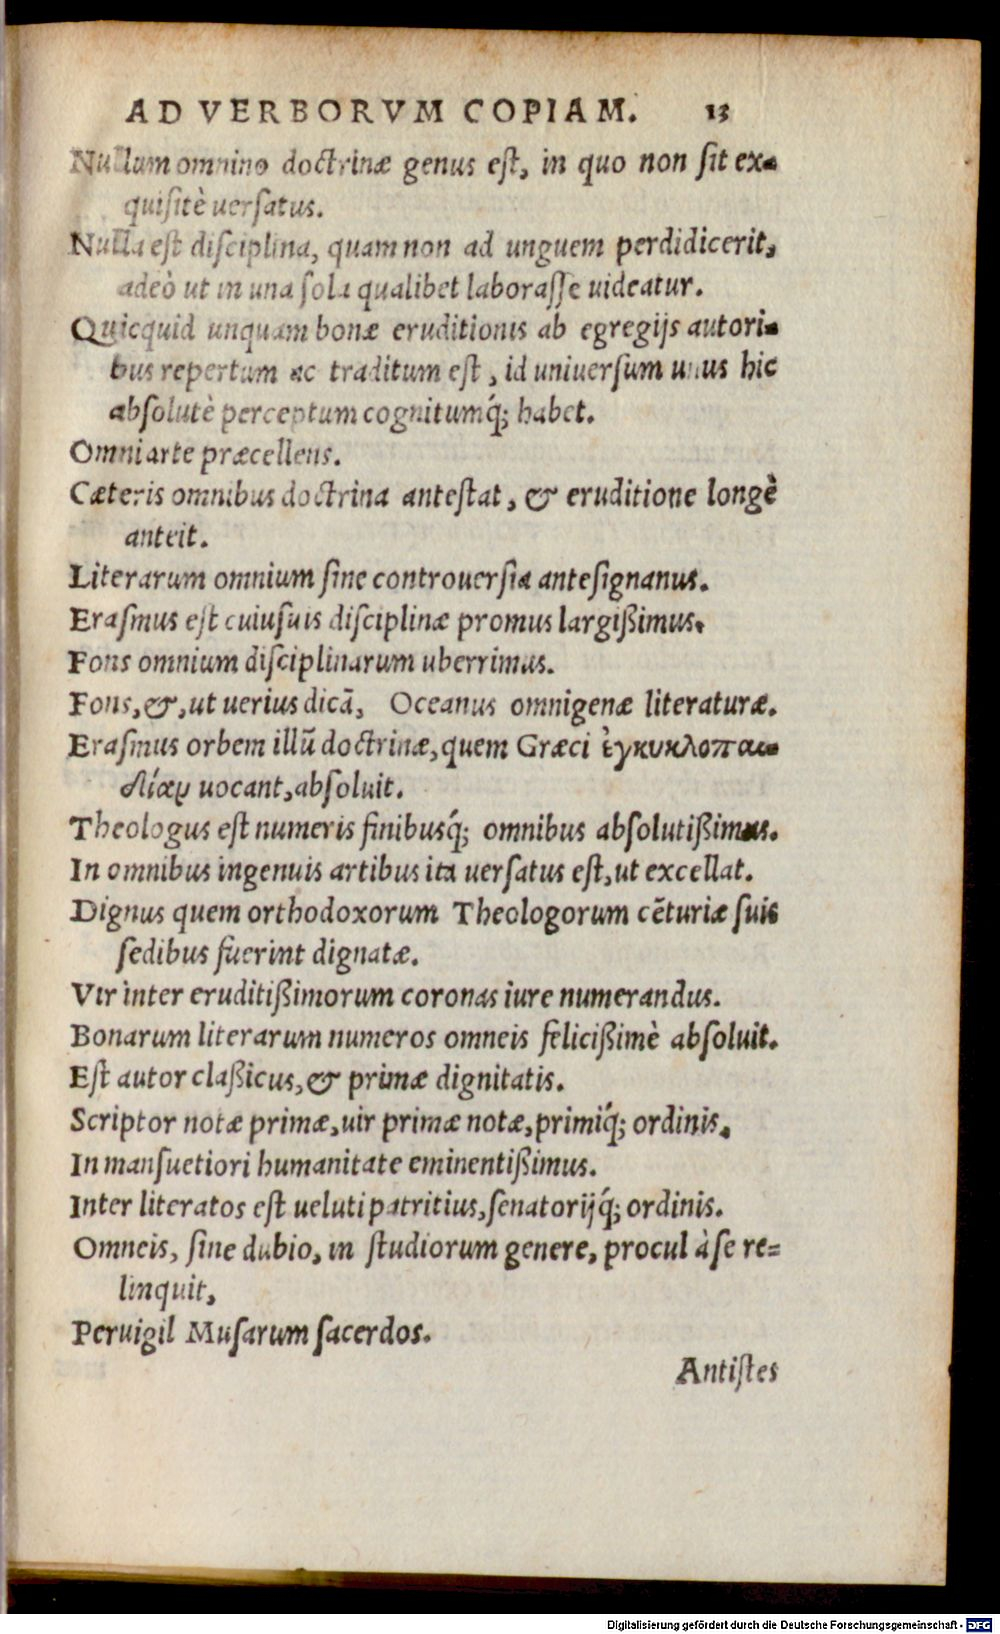 AD VERBORVM COPIAM. 13
Nullum omnino doctrinæ genus eſt, in quo non ſit ex-
quiſitè uerſatus.
Nulla eſt diſciplina, quam non ad unguem perdidicerit,
adeò ut in una ſola qualibet laboraſſe uideatur.
Quicquid unquam bonæ eruditionis ab egregijs autori-
bus repertum ac traditum eſt, id uniuerſum unus hic
abſolutè perceptum cognitumq́; habet.
Omni arte præcellens.
Cæteris omnibus doctrina anteſtat, & eruditione longè
anteit.
Literarum omnium ſine controuerſia anteſignanus.
Eraſmus eſt cuiuſuis diſciplinæ promus largißimus.
Fons omnium diſciplinarum uberrimus.
Fons, &, ut uerius dicā, Oceanus omnigenæ literaturæ.
Eraſmus orbem illū doctrinæ, quem Græci ἐγκυκλοπαι-
δίαν uocant, abſoluit.
Theologus eſt numeris finibusq́; omnibus abſolutißimus.
In omnibus ingenuis artibus ita uerſatus eſt, ut excellat.
Dignus quem orthodoxorum Theologorum cēturiæ ſuis
ſedibus fuerint dignatæ.
Vir inter eruditißimorum coronas iure numerandus.
Bonarum literarum numeros omneis felicißimè abſoluit.
Eſt autor claßicus, & primæ dignitatis.
Scriptor notæ primæ, uir primæ notæ, primiq́; ordinis.
In manſuetiori humanitate eminentißimus.
Inter literatos eſt ueluti patritius, ſenatorijq́; ordinis.
Omneis, ſine dubio, in ſtudiorum genere, procul à ſe re-
linquit,
Peruigil Muſarum ſacerdos.
Antiſtes
Digitalisierung gefördert durch die Deutsche Forschungsgemeinschaft - DFG